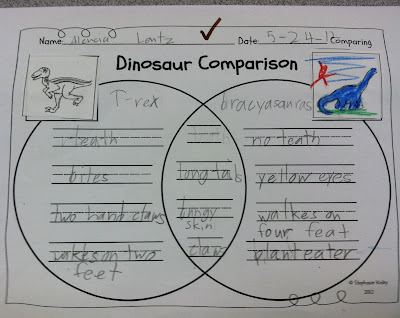 Name Date 5-24-12 Comparing
Dinosaur Comparison
T-rex
bracyasauras
teath
no teath
bites
long tails
yellow eyes
two hand claws
skin
walkes on
four feat
wakes on two
feet
claws
plant eater
© Stephanie
2012